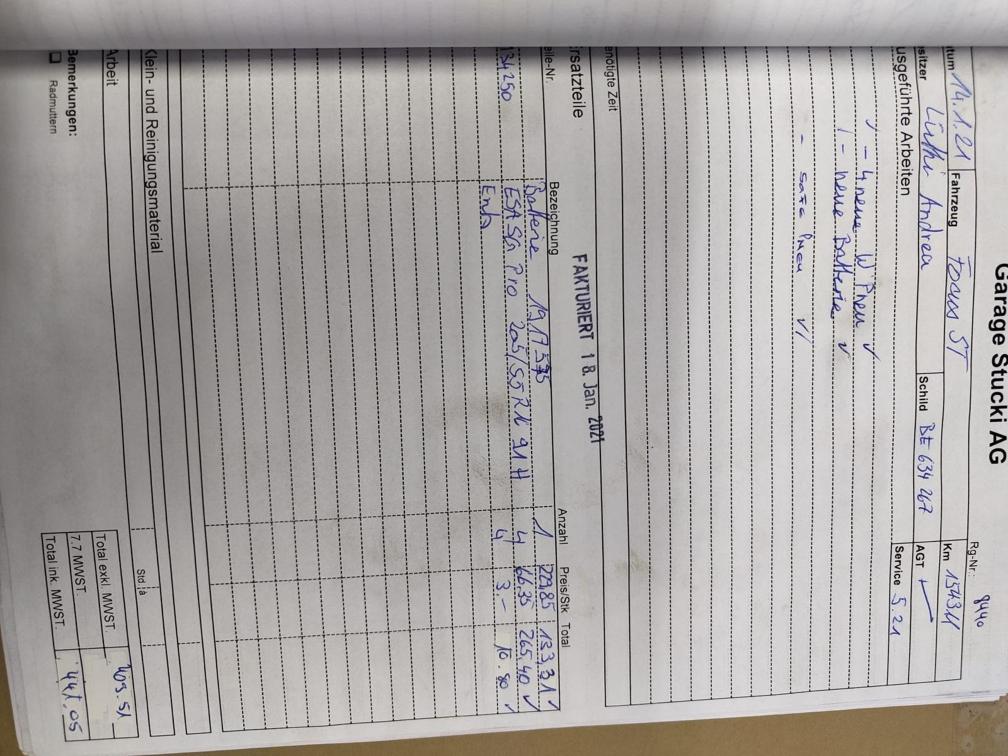 Garage Stucki AG
Rg-Nr. 9440
tum 14.1.21 Fahrzeug Focus ST Km 154311
sitzer Lüthi Andrea Schild BE 634 267 AGT ✓
usgeführte Arbeiten Service 5.21
✓ - 4 neue W Pneu ✓
- neue Batterie ✓
- Pneu
enötigte Zeit
FAKTURIERT 18. Jan. 2021
rsatzteile
eile-Nr. Bezeichnung Anzahl Preis/Stk Total
Batterie 1 229.85 133,31 ✓
134250 ESA 205/55 R16 91 H 4 66.35 265,40 ✓
Ents 4 3.- 10.80 ✓
Klein- und Reinigungsmaterial
Arbeit Std. à
Total exkl. MWST. 409.51
Bemerkungen: 7.7 MWST.
Radmuttern Total ink. MWST. 441.05